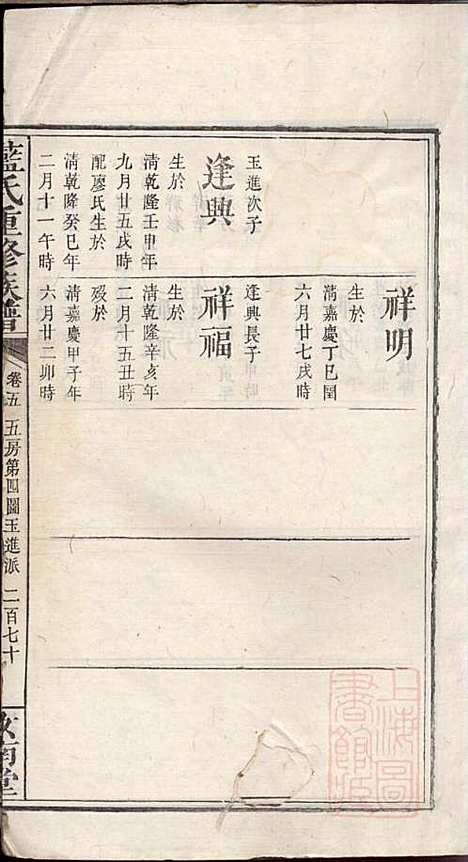 祥明
生於
清嘉慶丁巳閏
六月廿七戌時
玉進次子
逢興
生於
清乾隆壬申年
九月廿五戌時
配廖氏生於
清乾隆癸巳年
二月十一午時
逢興長子
祥福
生於
清乾隆辛亥年
二月十五丑時
殁於
清嘉慶甲子年
六月廿二卯時
藍氏重修族譜
卷五 五房第四圖玉進派 二百七十
汝南堂
上海圖書館藏